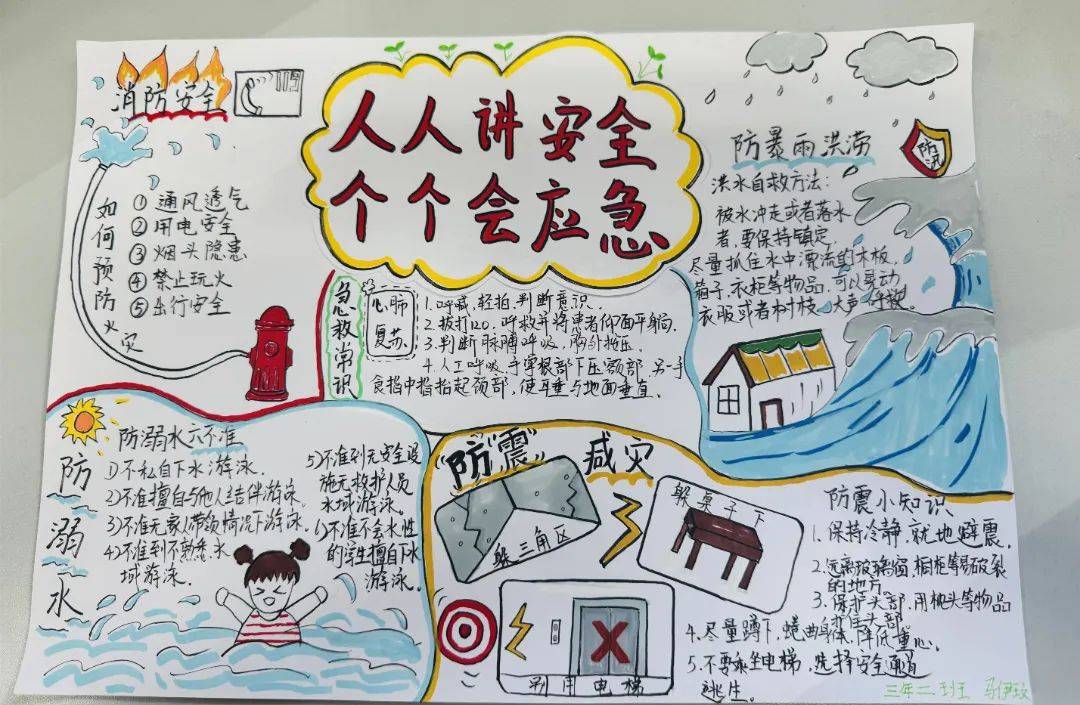 人人讲安全
个个会应急
消防安全
119
如何预防火灾
① 通风透气
② 用电安全
③ 烟头隐患
④ 禁止玩火
⑤ 出行安全
急救常识
心肺
复苏
1.呼喊,轻拍,判断意识.
2.拨打120.呼救并将患者仰面平躺.
3.判断脉膊呼吸,胸外按压.
4.人工呼吸,手掌根部下压额部,另一手
食指中指抬起颌部,使耳垂与地面垂直.
防暴雨洪涝
防汛
洪水自救方法:
被水冲走或者落水
者,要保持镇定,
尽量抓住水中漂流的木板,
箱子,衣柜等物品.可以晃动
衣服或者树枝,大声呼救.
防溺水
防溺水六不准
1)不私自下水游泳.
2)不准擅自与他人结伴游泳
3)不准无家人带领情况下游泳.
4)不准到不熟悉水
域游泳.
5)不准到无安全设
施无救护人员
水域游泳.
6)不准不会水性
的学生擅自下水
游泳.
"防"震"减灾
躲三角区
躲桌子下
别用电梯
防震小知识
1.保持冷静,就地避震.
2.远离玻璃窗,橱柜等易破裂
的地方
3.保护头部.用枕头等物品
护住头部.
4.尽量蹲下,蜷曲身体,降低重心.
5.不要乘坐电梯,选择安全通道
逃生.
三年二班